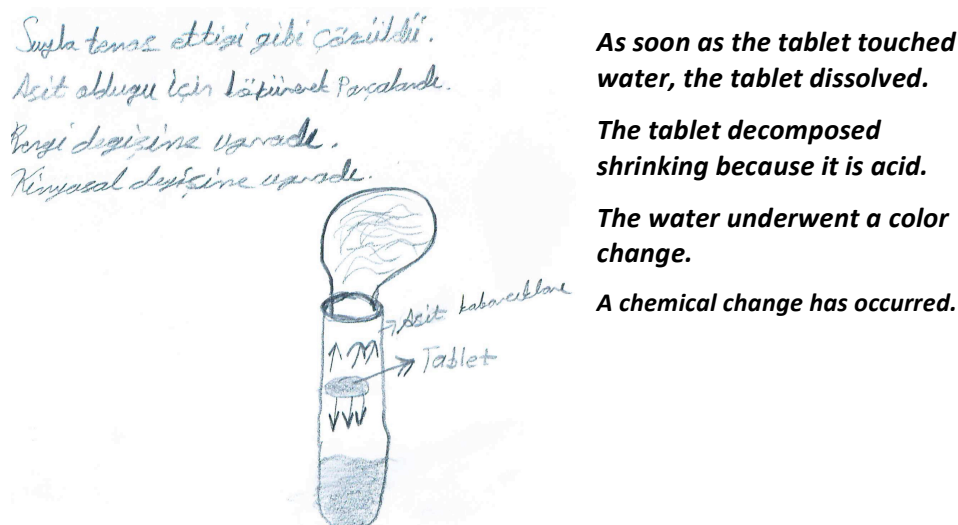 Suyla temas ettigi gibi çözüldü.
Asit oldugu için köpürerek Parçalandı.
Rengi degişime uğradı.
Kimyasal değişime uğradı.
Asit kabarcıkları
Tablet
As soon as the tablet touched
water, the tablet dissolved.
The tablet decomposed
shrinking because it is acid.
The water underwent a color
change.
A chemical change has occurred.